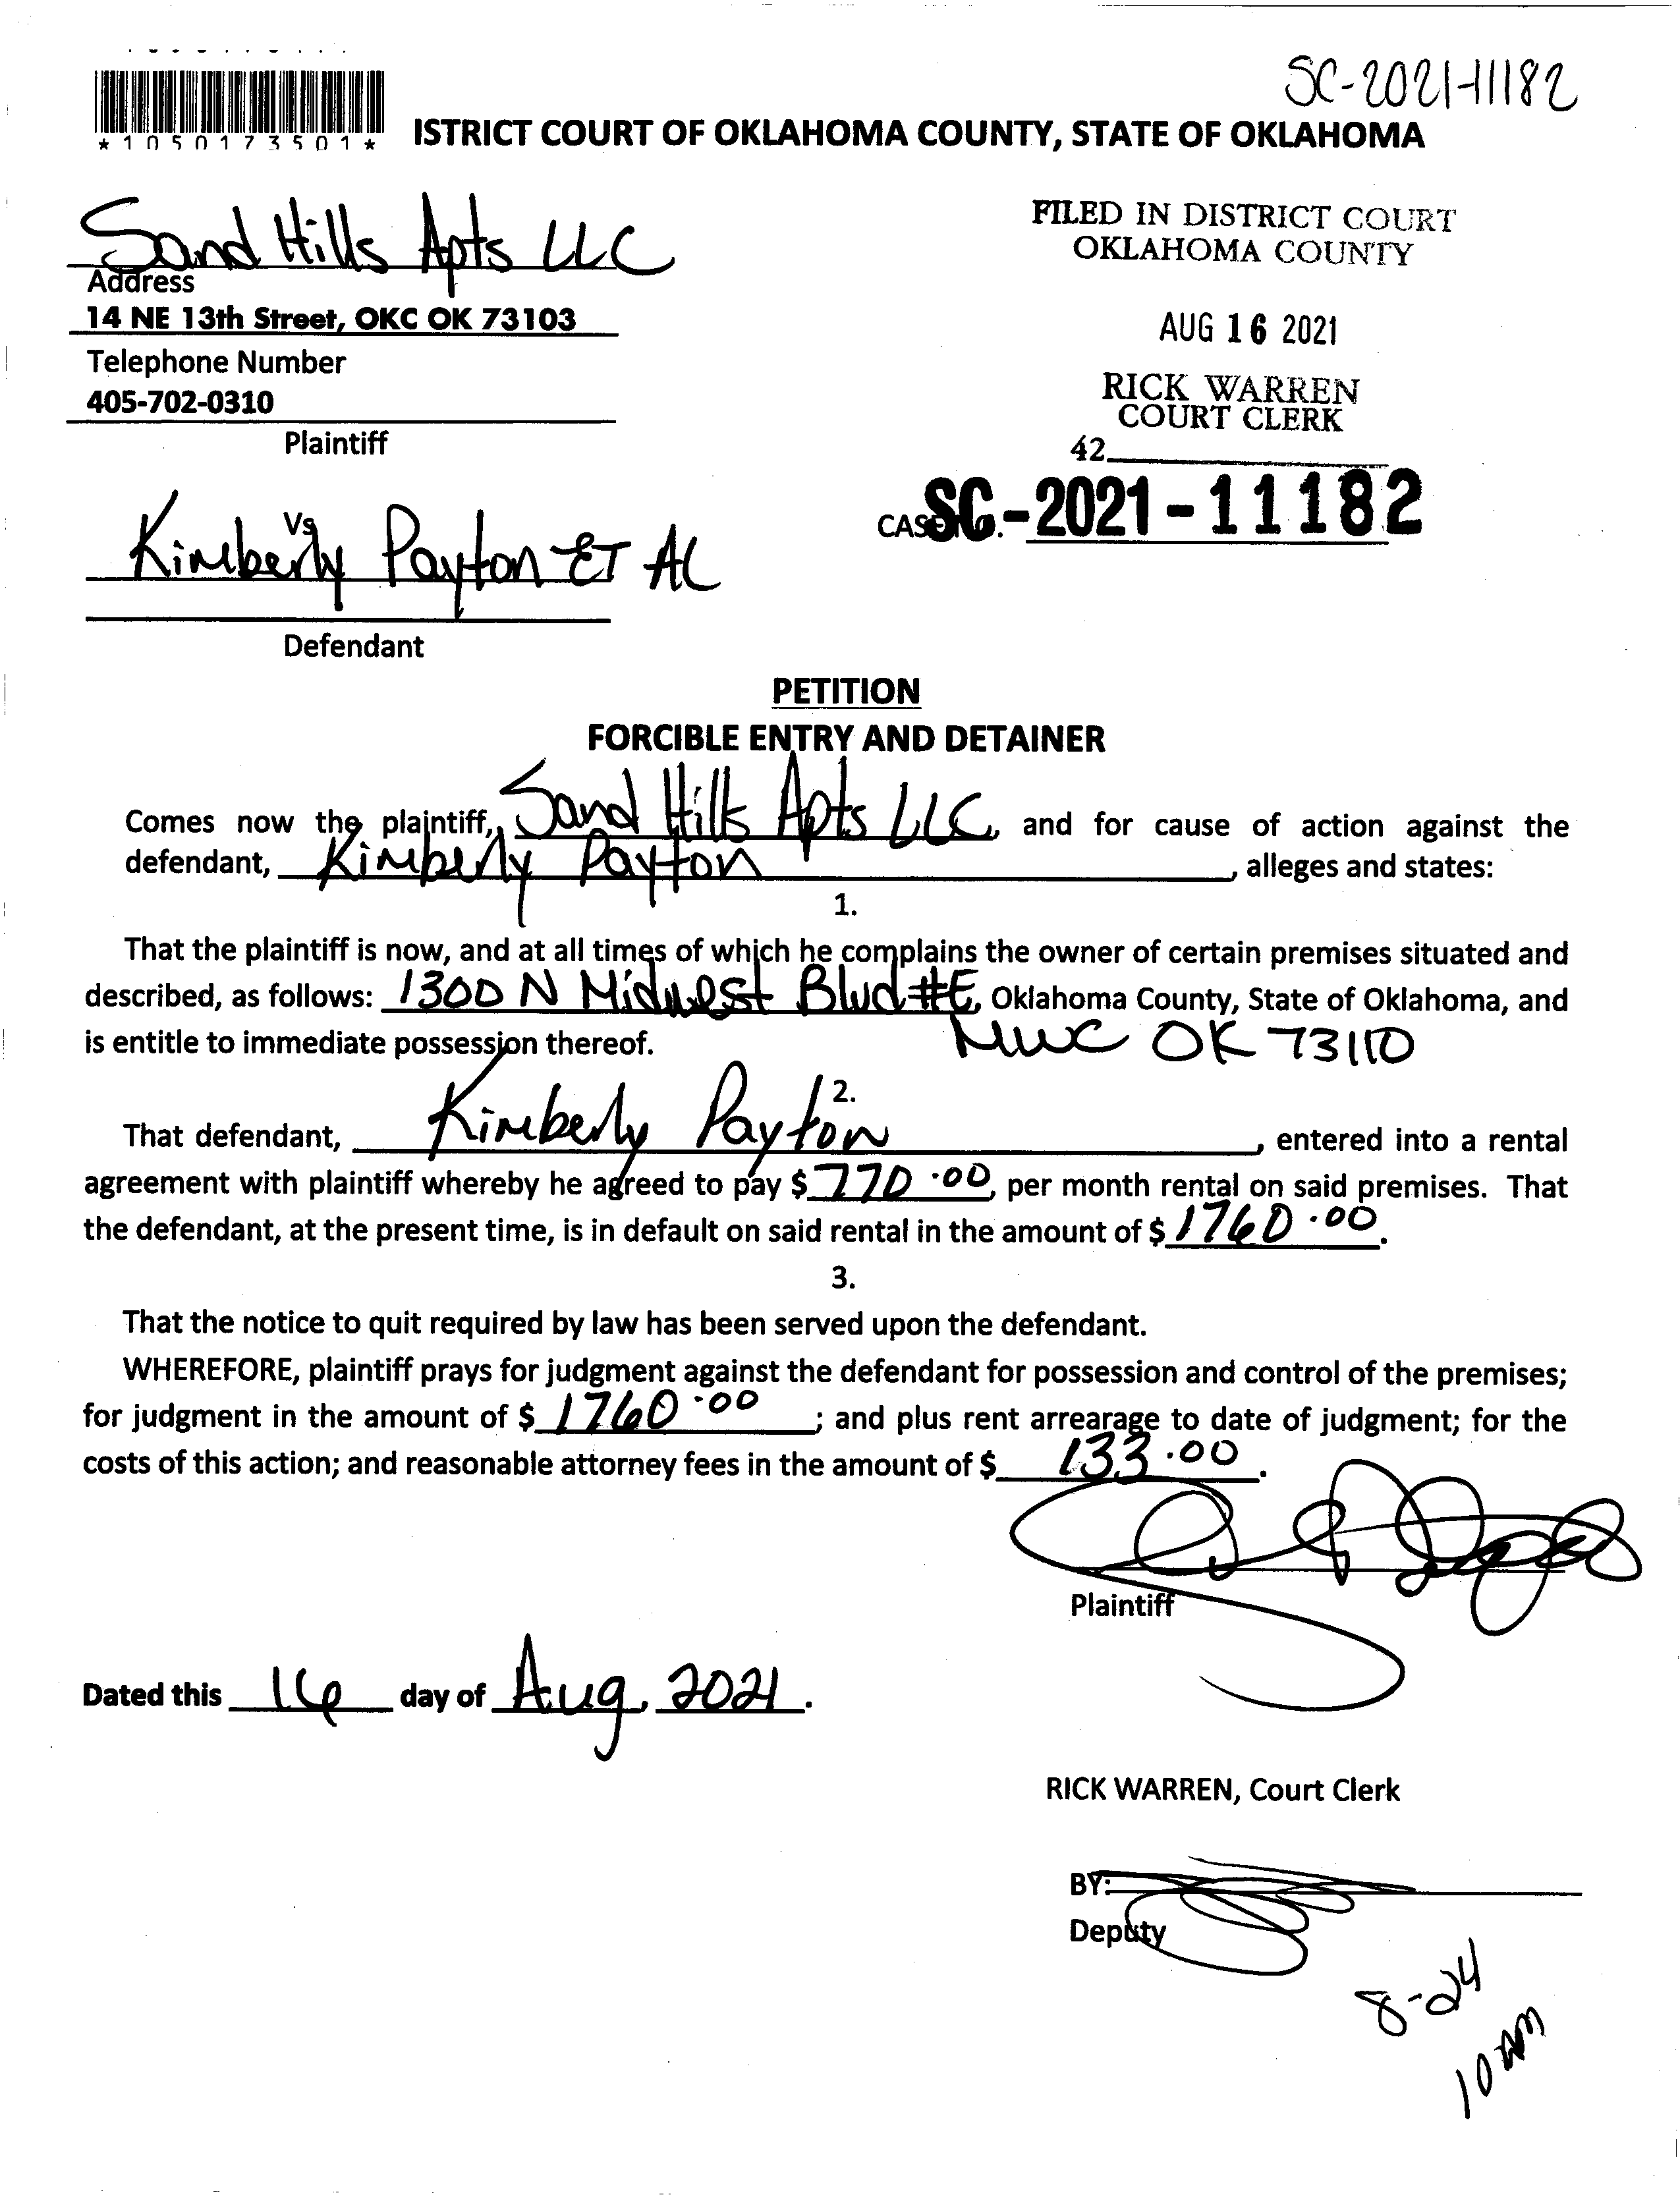 SC-2021-11182
*1050173501*
ISTRICT COURT OF OKLAHOMA COUNTY, STATE OF OKLAHOMA
Sand Hills Apts LLC
Address
14 NE 13th Street, OKC OK 73103
Telephone Number
405-702-0310
Plaintiff
FILED IN DISTRICT COURT
OKLAHOMA COUNTY
AUG 16 2021
RICK WARREN
COURT CLERK
42
CASE NO. SC-2021-11182
Vs
Kimberly Payton ET AL
Defendant
PETITION
FORCIBLE ENTRY AND DETAINER
Comes now the plaintiff, Sand Hills Apts LLC, and for cause of action against the
defendant, Kimberly Payton, alleges and states:
1.
That the plaintiff is now, and at all times of which he complains the owner of certain premises situated and
described, as follows: 1300 N Midwest Blvd #E, Oklahoma County, State of Oklahoma, and
is entitle to immediate possession thereof. MWC OK 73110
2.
That defendant, Kimberly Payton, entered into a rental
agreement with plaintiff whereby he agreed to pay $ 770.00, per month rental on said premises. That
the defendant, at the present time, is in default on said rental in the amount of $ 1760.00.
3.
That the notice to quit required by law has been served upon the defendant.
WHEREFORE, plaintiff prays for judgment against the defendant for possession and control of the premises;
for judgment in the amount of $ 1760.00 ; and plus rent arrearage to date of judgment; for the
costs of this action; and reasonable attorney fees in the amount of $ 133.00.
Plaintiff
Dated this 16 day of Aug, 2021.
RICK WARREN, Court Clerk
BY:
Deputy
8-24
10 AM